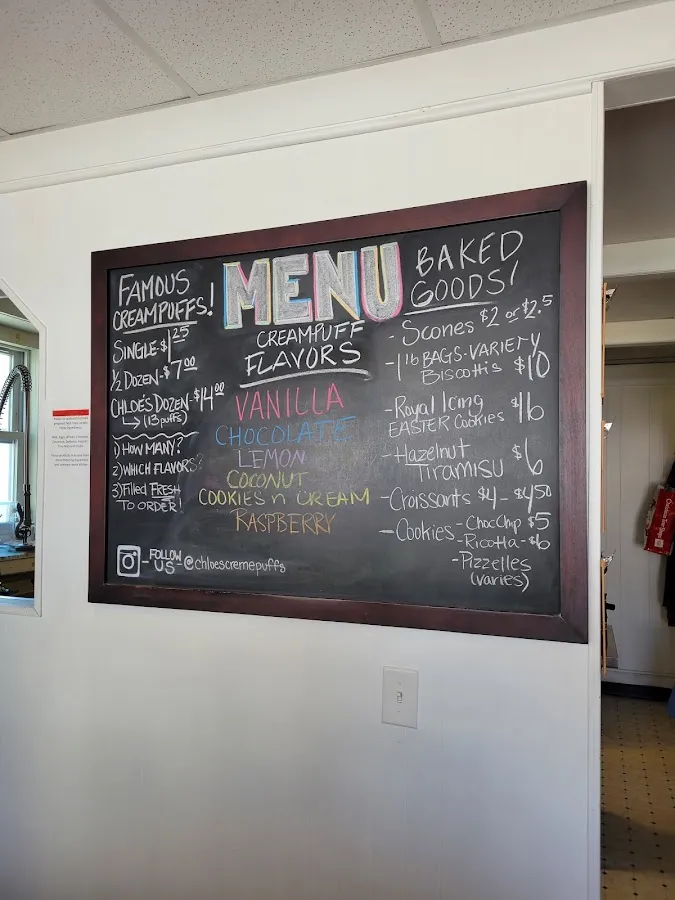 FAMOUS
CREAMPUFFS!
SINGLE-$1.25
1/2 DOZEN-$7.00
CHLOE'S DOZEN-$14.00
→(13 puffs)
1) HOW MANY?
2) WHICH FLAVORS?
3) Filled FRESH
TO ORDER!
FOLLOW
US - @chloescremepuffs
MENU
CREAMPUFF
FLAVORS
VANILLA
CHOCOLATE
LEMON
COCONUT
COOKIES n CREAM
RASPBERRY
BAKED
GOODS!
- Scones $2 or $2.5
- 1 lb BAGS-VARIETY
BISCOTTIS $10
- Royal Icing
EASTER COOKIES
- Hazelnut
TIRAMISU $6
- Croissants $4 - $4.50
- Cookies - Choc Chip $5
- Ricotta - $6
- Pizzelles
(varies)